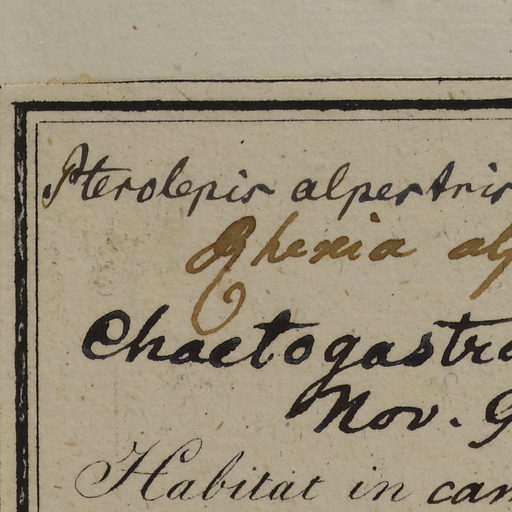 Pterolepis alpestris
Rhexia alp
Chaetogastra
Nov. G
Habitat in cam